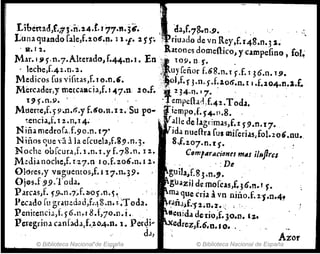 Libertad,f.73.n.24.f.177.n.36.
Luna quando sale,f.206.n. 11.f. 255.
n. 12.
Mar.195.n.7.Alterado,f.44.n.1. En
leche,f.42.n.2.
Medicos sus visitas,f.10.n.6.
Mercader,y mercancia,f.147.n. 20.f.
195.n.9.
Muerte,f.59.n.6.y f.60.n.12. Su potencia,f.12.n.14.
Niña medrosa.f.90.n.17
Niños que và à la escuela,f.89.n.3.
Noche obscura,f.2.n.1.y f.78.n. 12.
Media noche,f.127.n 10.f.206.n.12.
Olores,y vnguentos,f.117.n.39.
Ojos.f 99.Toda.
Parcas,f. 59.n.7.f.205.n.5.
Pecado su grauedad,f.48.n.1.Toda.
Penitencia,f.56.n.18.f.70.n.1.
Peregrina cansada,f.204.n. 1. Perdi-
da,
da,f.78.n.9.
Priuado de vn Rey,f.148.n.32.
Ratones domestico,y campesino , fol.
109.n.5.
Ruyseñor f.68.n.15.f.136.n.19.
Sol,f.53.n.5.f.206.n.11.f.204.n.2.f.
234.n.17.
Tempestad.f.42.Toda.
Tiempo,f.54.n.8.
Valle de lagrimas,f.259.n.17.
Vida nuestra sus miserias,fol.206.nu.
8.f.207.n.15.
Comparaciones mas ilustres
De
Aguila,f.83.n.9.
Alguazil de moscas,f.36.n.15.
Ama que cria à vn niño.f.25.n.4.
Araña,f.52.n.2.
Auenida de rio,f.30.n.12.
Axedrez,f.6.n.10.
Azor
© Biblioteca Nacional de España
© Biblioteca Nacional de España